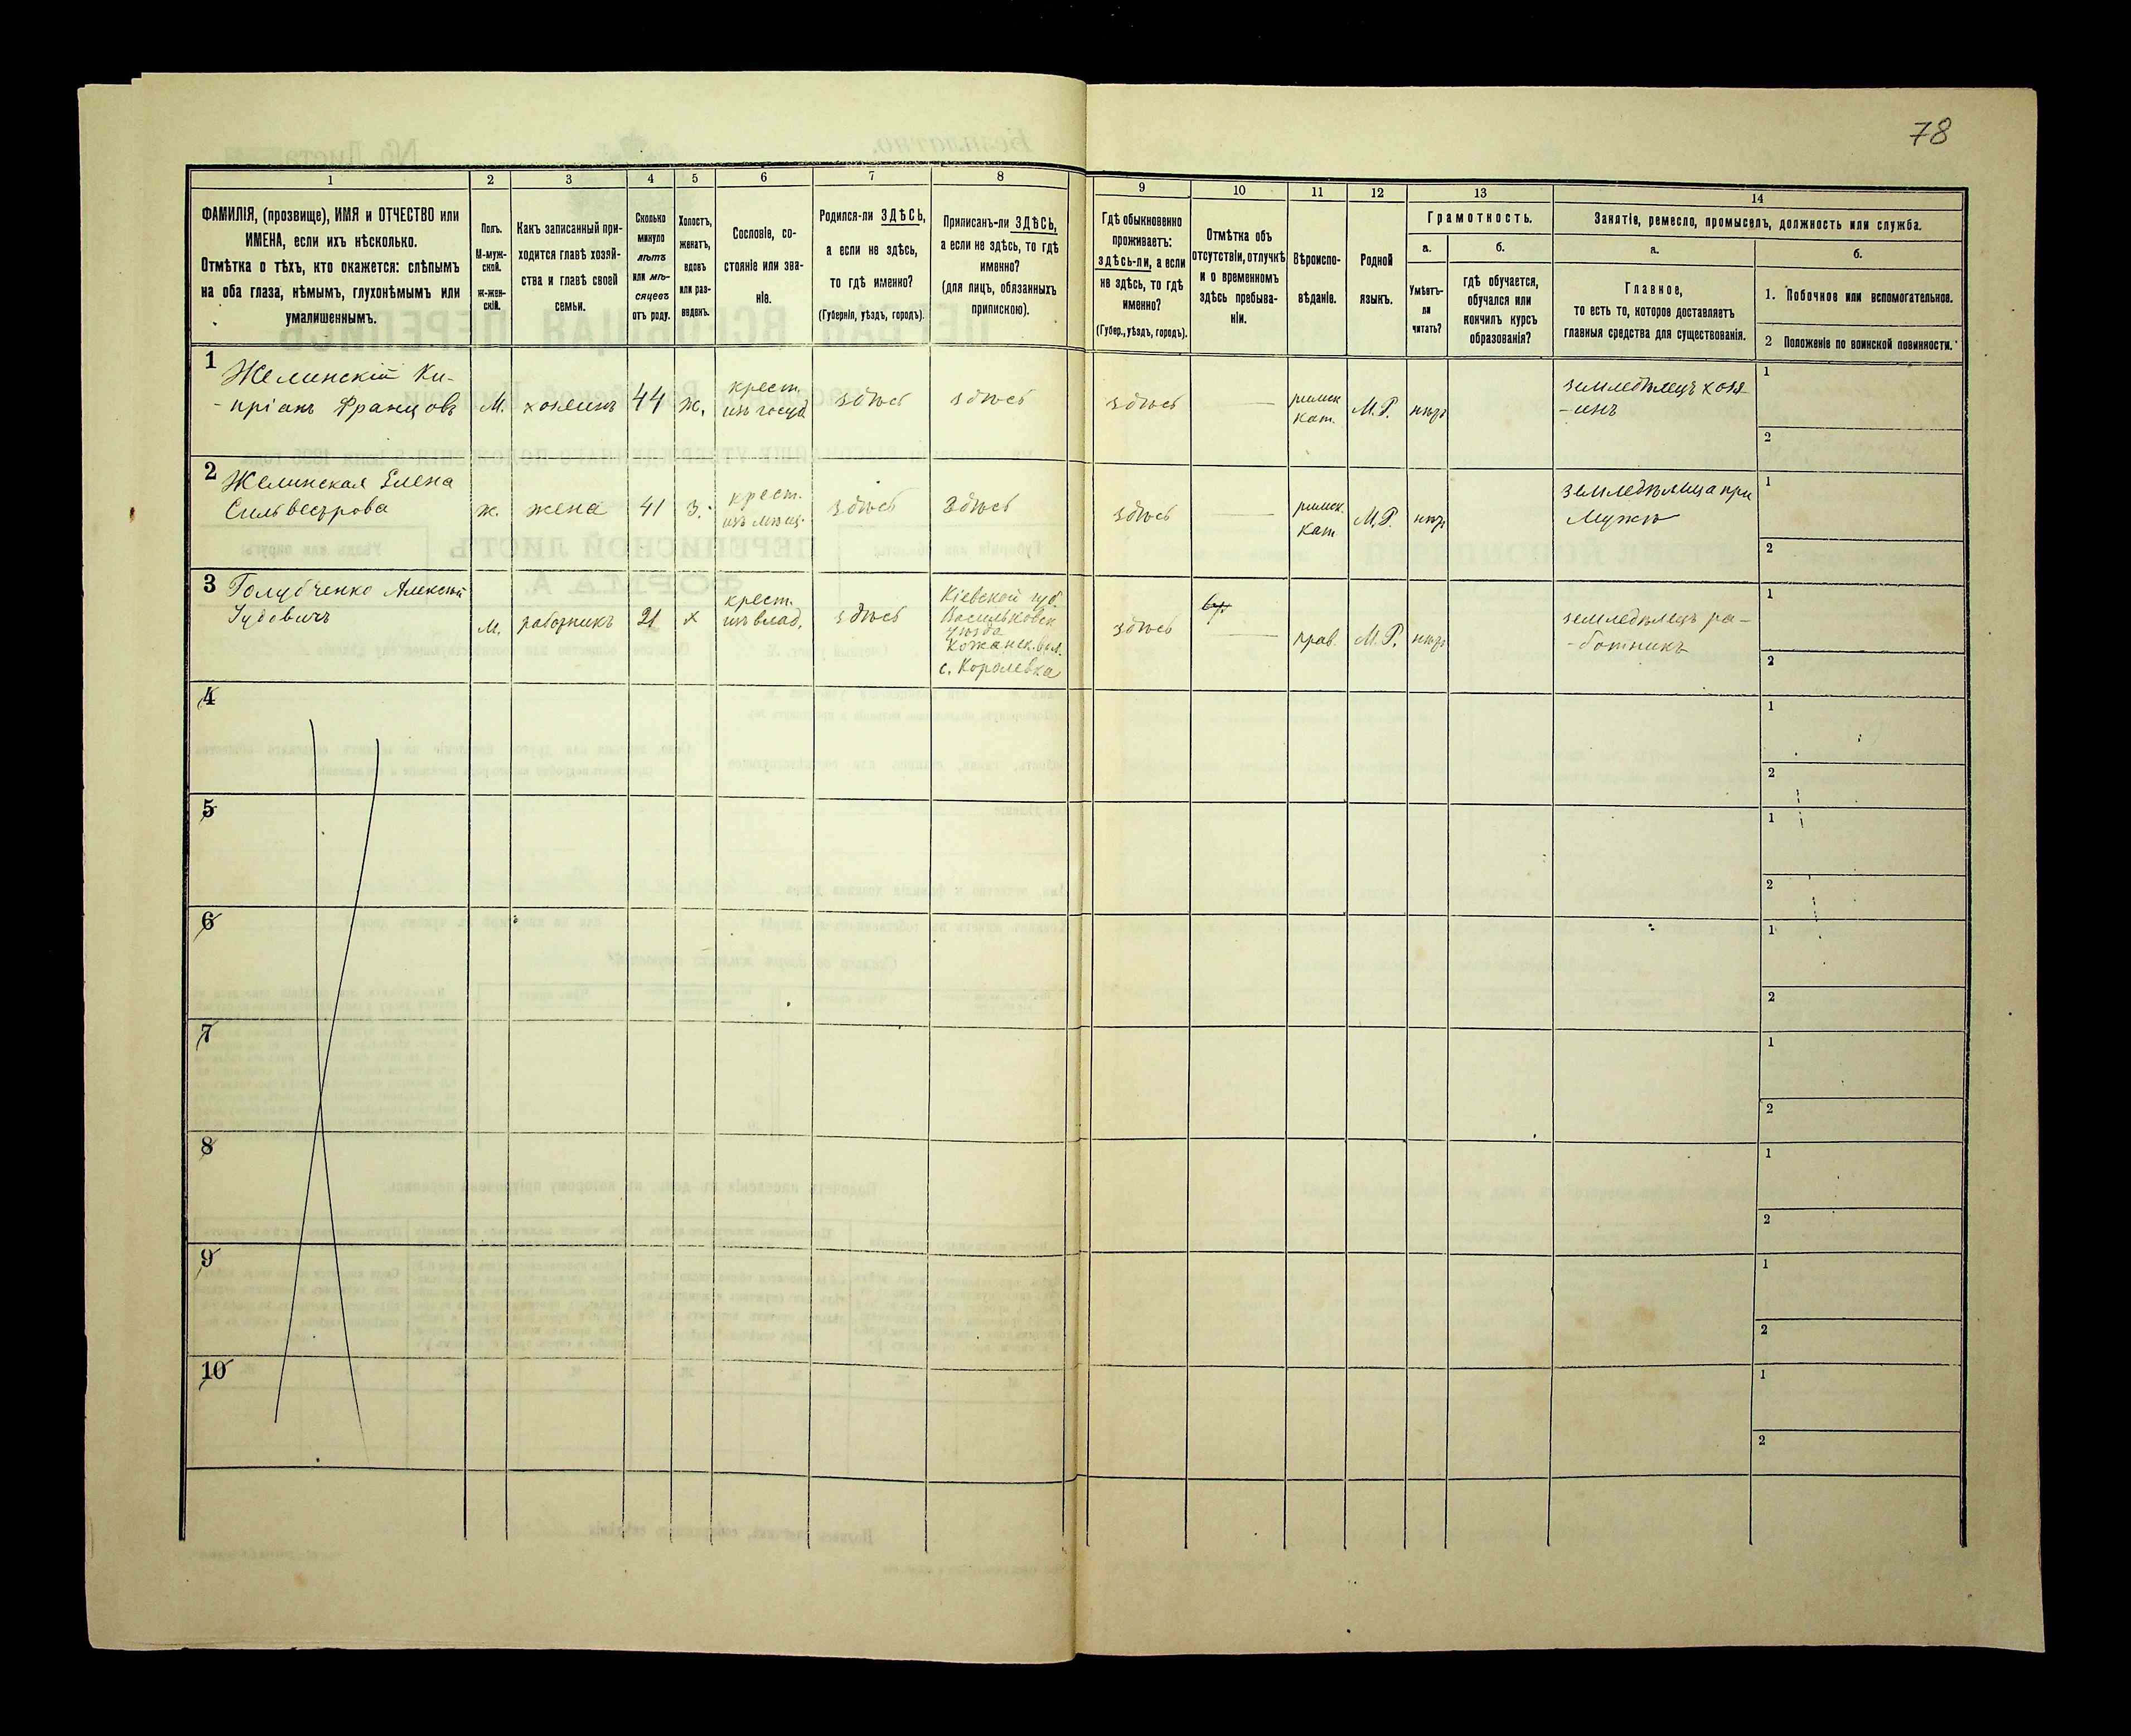 78
1 2 3 4 5 6 7 8 9 10 11 12 13 14
ФАМИЛІЯ, (прозвище), ИМЯ и ОТЧЕСТВО или
ИМЕНА, если ихъ нѣсколько.
Отмѣтка о тѣхъ, кто окажется: слѣпымъ
на оба глаза, нѣмымъ, глухонѣмымъ или
умалишеннымъ.
Полъ.
М-муж-
ской.
ж-жен-
скій.
Какъ записанный при-
ходится главѣ хозяй-
ства и главѣ своей
семьи.
Сколько
минуло
лѣтъ
или мѣ-
сяцевъ
отъ роду.
Холостъ,
женатъ,
вдовъ
или раз-
веденъ.
Сословіе, со-
стояніе или зва-
ніе.
Родился-ли ЗДѢСЬ,
а если не здѣсь,
то гдѣ именно?
(Губернія, уѣздъ, городъ).
Приписанъ-ли ЗДѢСЬ,
а если не здѣсь, то гдѣ
именно?
(для лицъ, обязанныхъ
припискою).
Гдѣ обыкновенно
проживаетъ:
здѣсь-ли, а если
не здѣсь, то гдѣ
именно?
(Губер., уѣздъ, городъ).
Отмѣтка объ
отсутствіи, отлучкѣ
и о временномъ
здѣсь пребыва-
ніи.
Вѣроиспо-
вѣданіе.
Родной
языкъ.
Грамотность.
а.
Умѣетъ-
ли
читать?
б.
гдѣ обучается,
обучался или
кончилъ курсъ
образованія?
Занятіе, ремесло, промыселъ, должность или служба.
а.
Главное,
то есть то, которое доставляетъ
главныя средства для существованія.
б.
1. Побочное или вспомогательное.
2 Положеніе по воинской повинности.
1
Желинскій Ки-
-пріанъ Францовъ
М.
хозяинъ
44
ж.
крест.
изъ госуд
здѣсь
здѣсь
здѣсь
римск
кат.
М.Р.
нѣтъ
земледѣлецъ хозя-
-инъ
1
2
2
Желинская Елена
Сильвестрова
ж.
жена
41
з.
крест.
здѣсь
здѣсь
здѣсь
римск.
кат
М.Р.
нѣтъ
земледѣлица при
мужѣ
1
2
3
Голубченко Алексѣй
Іудовичъ
М.
работникъ
21
х
крест.
изъ влад.
здѣсь
Кіевской губ.
Васильковск
уѣзда
Кожанск. вол.
с. Королевка
здѣсь
прав.
М.Р.
нѣтъ
земледѣлецъ ра-
-ботникъ
1
2
4
1
2
5
1
2
6
1
2
7
1
2
8
1
2
9
1
2
10
1
2